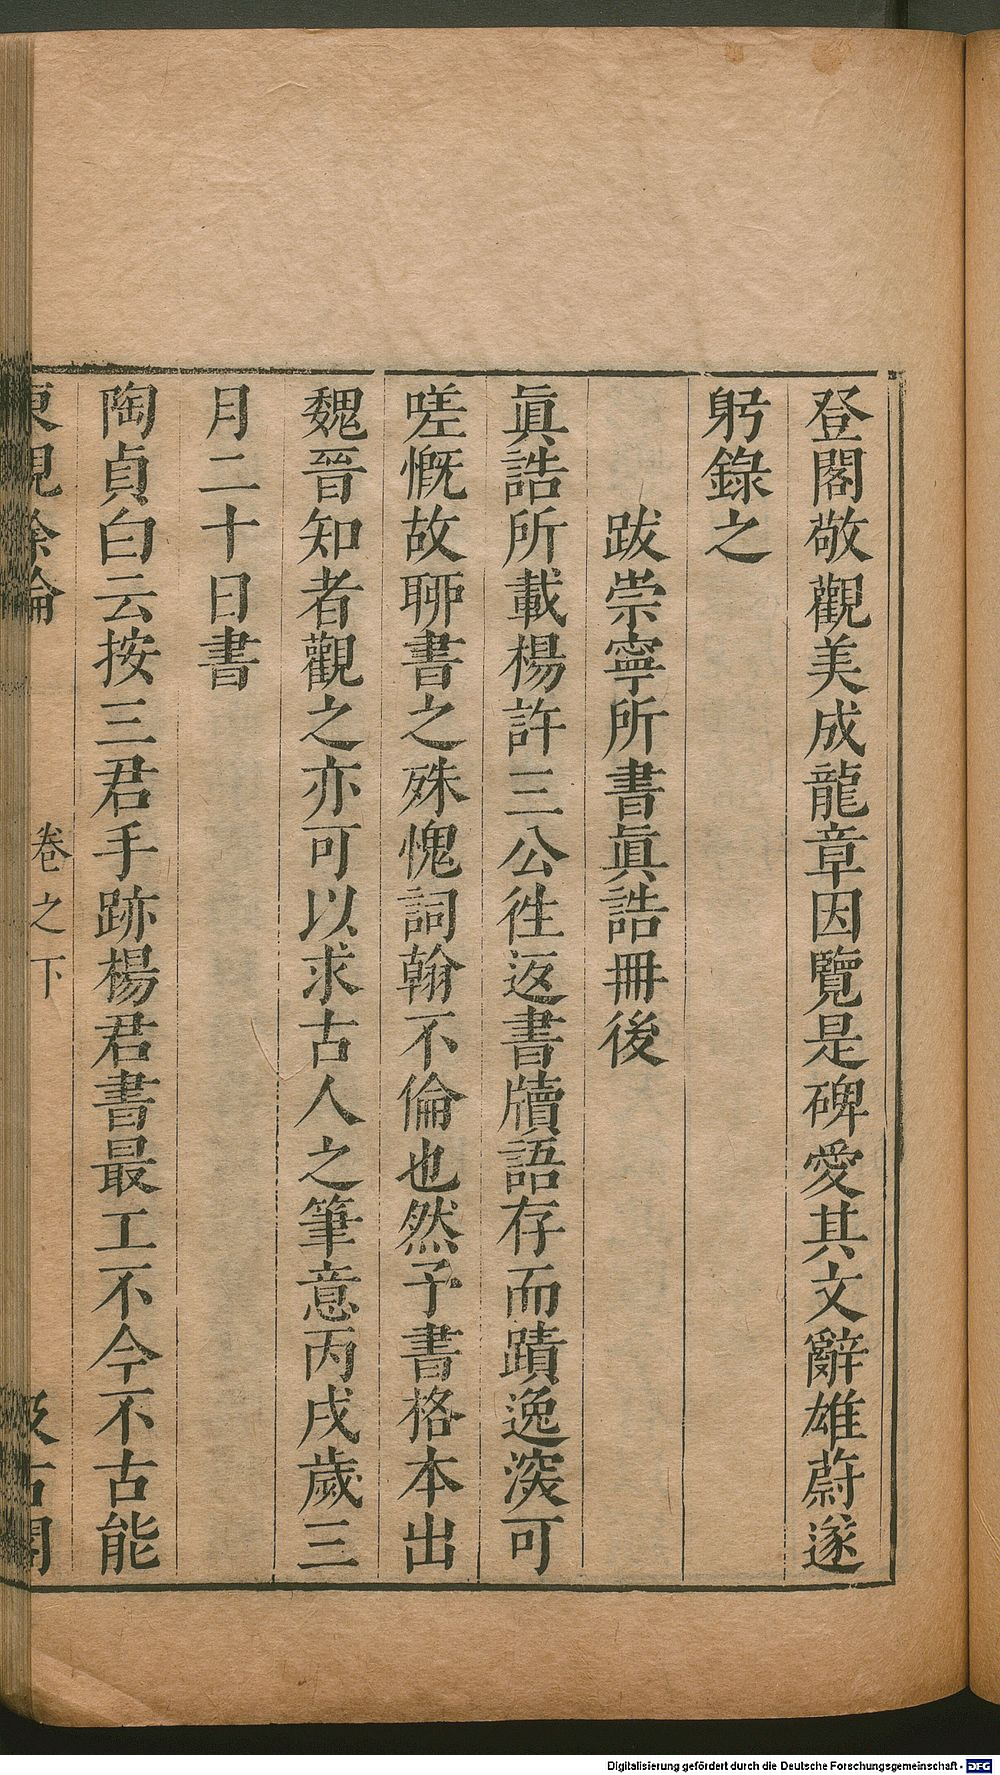 登閣敬觀美成龍章因覽是碑愛其文辭雄蔚遂
躬錄之
跋崇寧所書眞誥冊後
眞誥所載楊許三公徃返書牘語存而蹟逸深可
嗟慨故聊書之殊愧詞翰不倫也然予書格本出
魏晉知者觀之亦可以求古人之筆意丙戌歲三
月二十日書
陶貞白云按三君手跡楊君書最工不今不古能
東觀餘論
卷之下
汲古閣
Digitalisierung gefördert durch die Deutsche Forschungsgemeinschaft - DFG